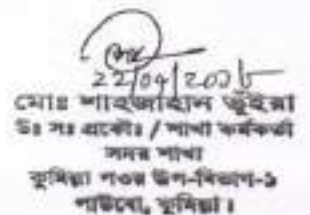 22/04/2018
মোঃ শাহজাহান ভূঁইয়া
উঃ সঃ প্রকৌঃ / শাখা কর্মকর্তা
সদর শাখা
কুমিল্লা পওর উপ-বিভাগ-১
পাউবো, কুমিল্লা।